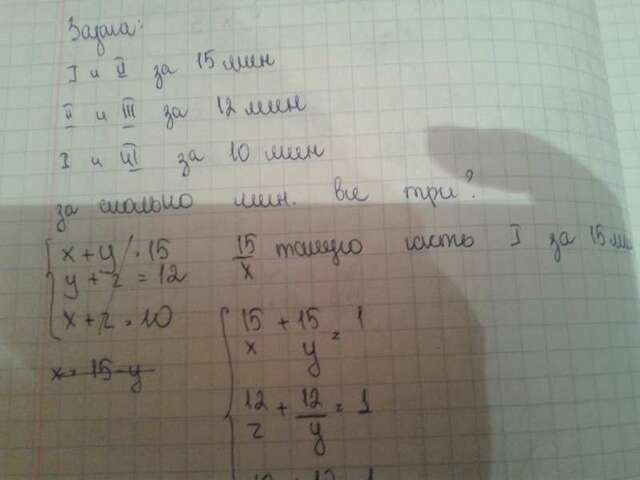 Задача:
I и II за 15 мин
II и III за 12 мин
I и III за 10 мин
за сколько мин. все три?
x + y = 15
y + z = 12
x + z = 10
x = 15 - y
15/x такую часть I за 15 мин
15/x + 15/y = 1
12/z + 12/y = 1